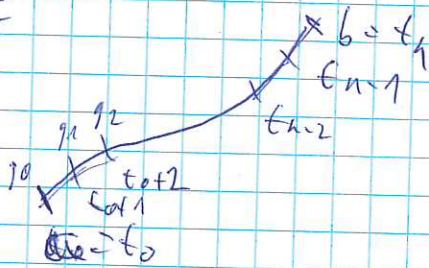 b = tn
tn-1
tn-2
g2
g1
g0
t0+2
t0+1
= t0